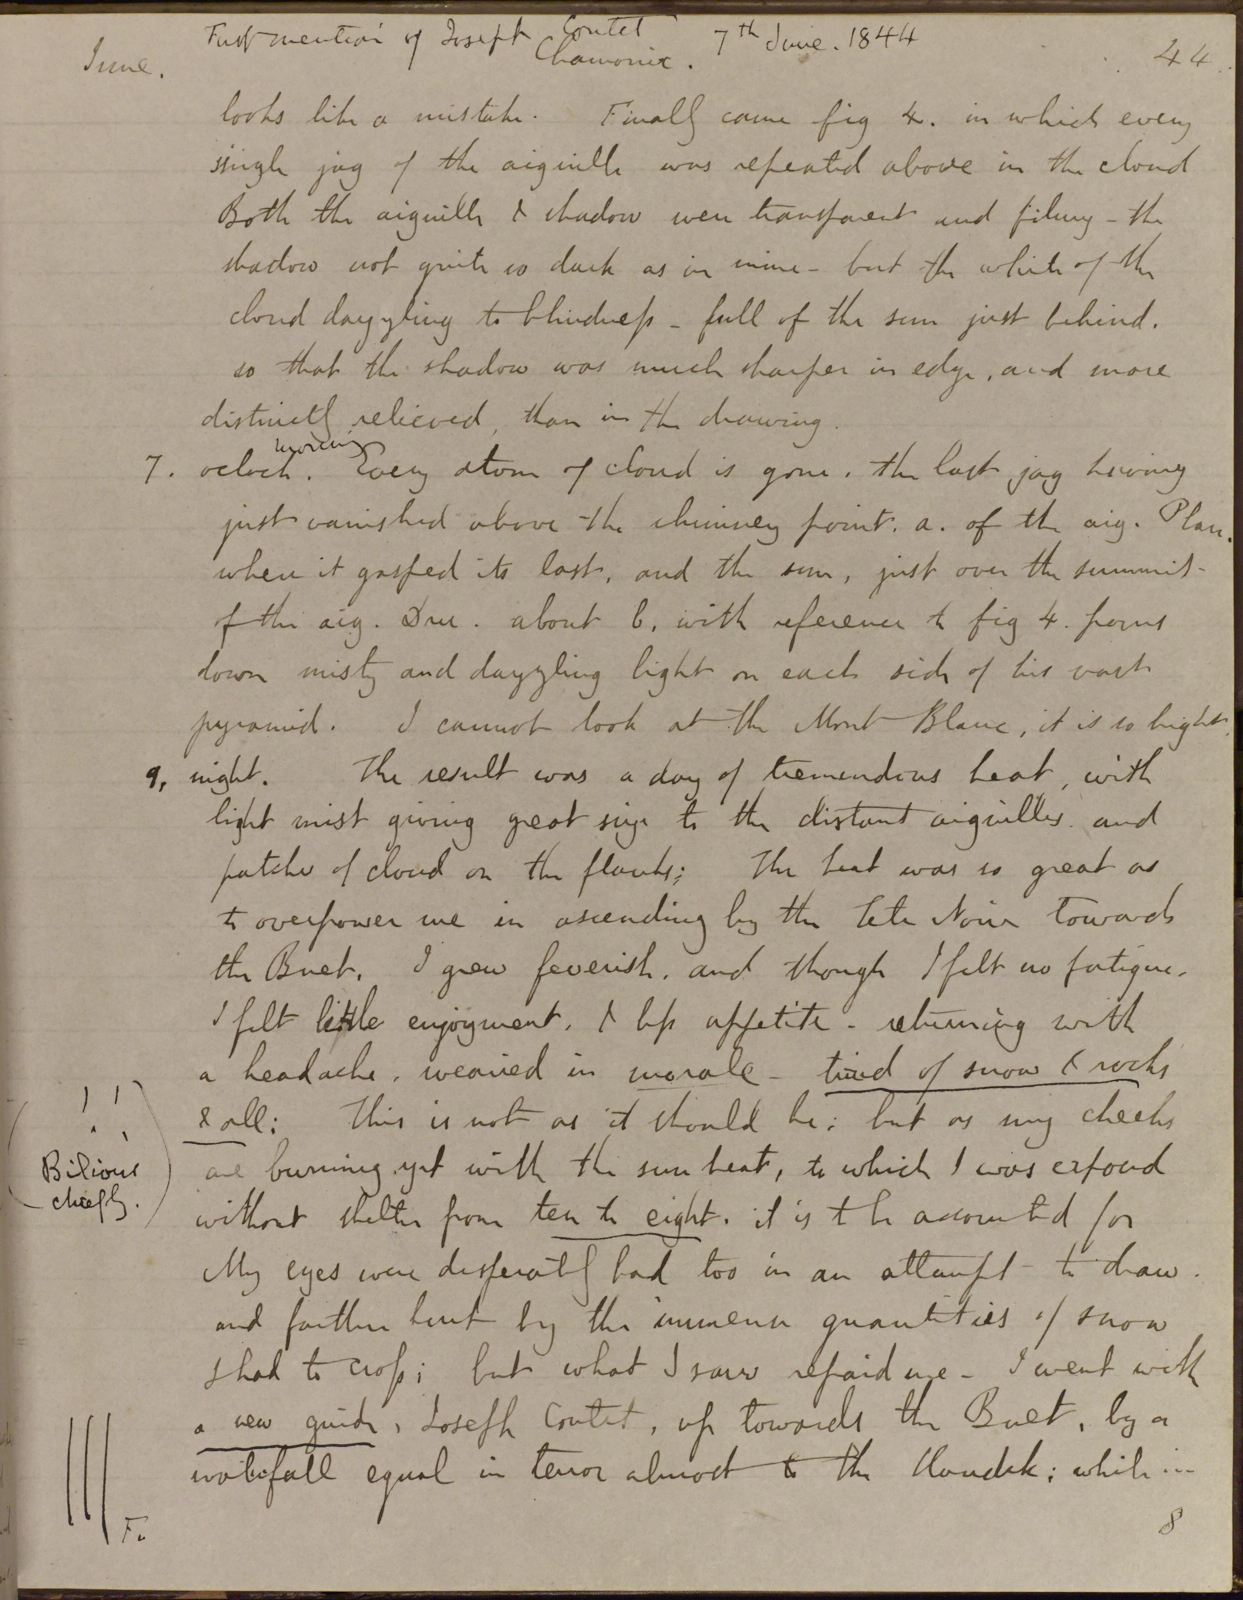 First mention of Joseph Coutet
Chamonix. 7th June. 1844
June.
44.
looks like a mistake. Finally came fig 4. in which every
single jag of the aiguille was repeated above in the cloud
Both the aiguille & shadow were transparent and filmy - the
shadow not quite so dark as in mine - but the white of the
cloud dazzling to blindness - full of the sun just behind.
so that the shadow was much sharper in edge, and more
distinctly relieved, than in the drawing.
morning
7. oclock. Every atom of cloud is gone. the last jag having
just vanished above the chimney point. a. of the aig. Plan.
when it gasped its last, and the sun, just over the summit
of the aig. Dru. about b, with reference to fig 4. pours
down misty and dazzling light on each side of his vast
pyramid. I cannot look at the Mont Blanc, it is so bright.
9, night. The result was a day of tremendous heat, with
light mist giving great size to the distant aiguilles and
patches of cloud on the flanks; The heat was so great as
to overpower me in ascending by the Tete Noire towards
the Buet. I grew feverish, and though I felt no fatigue,
I felt little enjoyment, & less appetite - returning with
a headache, wearied in morale - tired of snow & rocks
& all: This is not as it should be; but as my cheeks
! !
Bilious
chiefly.
are burning yet with the sun heat, to which I was exposed
without shelter from ten to eight. it is to be accounted for
My eyes were desperately bad too in an attempt to draw.
and farther hurt by the immense quantities of snow
I had to cross; but what I saw repaid me - I went with
a new guide, Joseph Coutet, up towards the Buet, by a
waterfall equal in terror almost to the Handek; while in
F.
8